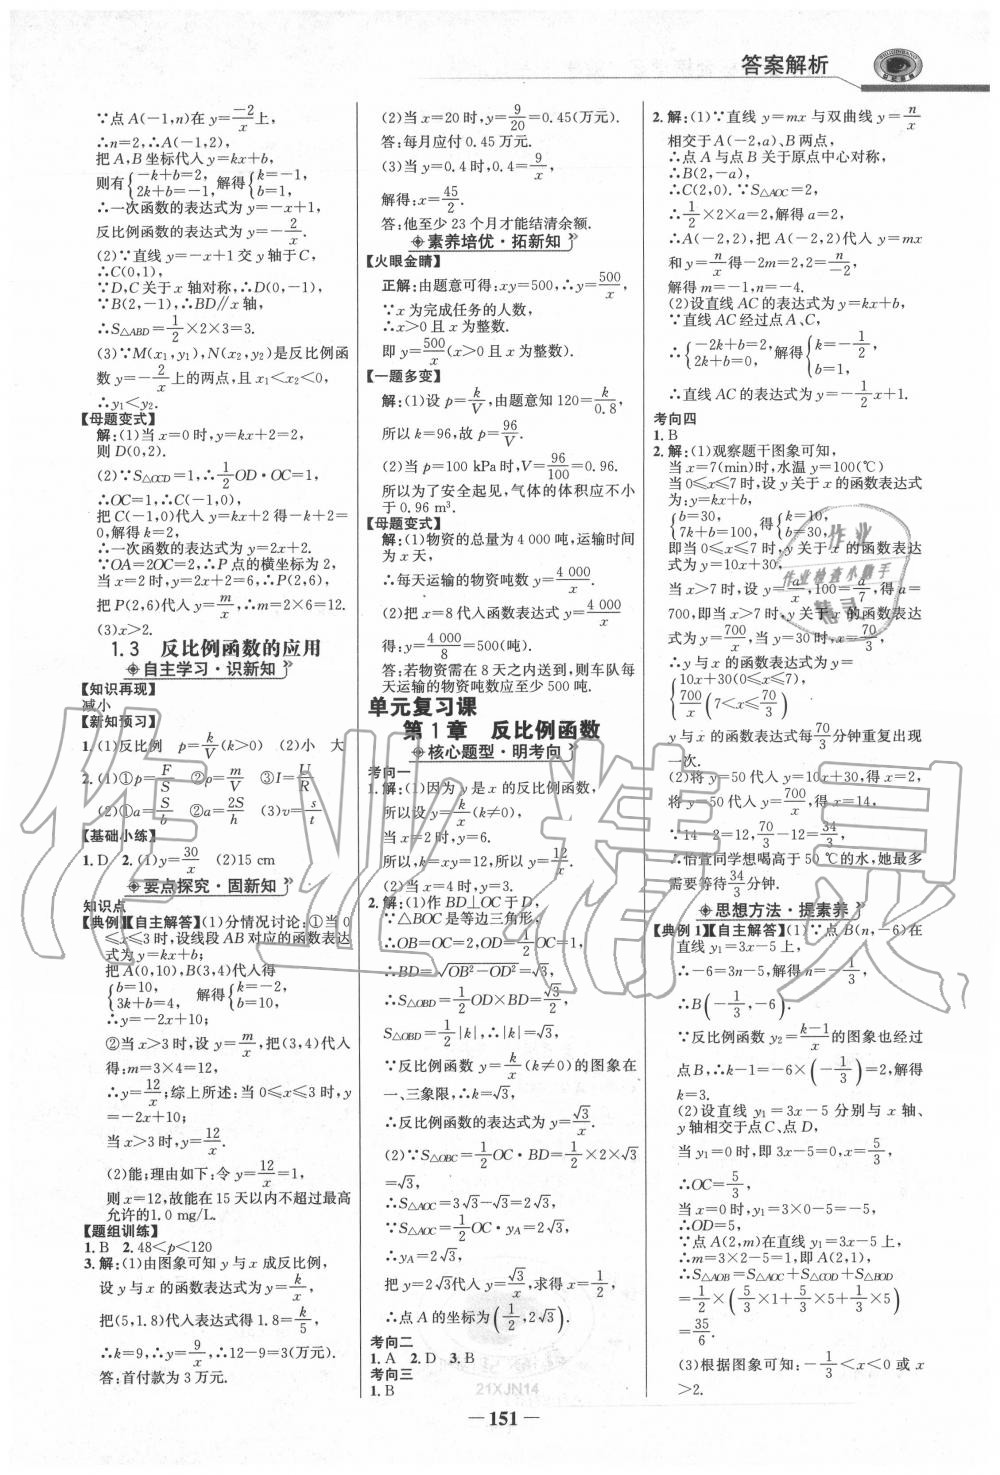 答案解析
∵点 A(-1,n)在 y=\frac{-2}{x}上,
∴n=2,∴A(-1,2),
把 A,B 坐标代入 y=kx+b,
则有{-k+b=2, 2k+b=-1, 解得{k=-1, b=1,
∴一次函数的表达式为 y=-x+1,
反比例函数的表达式为 y=-\frac{2}{x}.
(2)∵直线 y=-x+1 交 y 轴于 C,
∴C(0,1),
∵D,C 关于 x 轴对称,∴D(0,-1),
∵B(2,-1),∴BD∥x 轴,
∴S△ABD=\frac{1}{2}×2×3=3.
(3)∵M(x₁,y₁),N(x₂,y₂)是反比例函
数 y=-\frac{2}{x}上的两点,且 x₁<x₂<0,
∴y₁<y₂.
【母题变式】
解:(1)当 x=0 时,y=kx+2=2,
则 D(0,2).
(2)∵S△OCD=1,∴\frac{1}{2}OD·OC=1,
∴OC=1,∴C(-1,0),
把 C(-1,0)代入 y=kx+2 得-k+2=
0,解得 k=2,
∴一次函数的表达式为 y=2x+2.
∵OA=2OC=2,∴P 点的横坐标为 2.
当 x=2 时,y=2x+2=6,∴P(2,6),
把 P(2,6)代入 y=\frac{m}{x},∴m=2×6=12.
(3)x>2.
1.3 反比例函数的应用
自主学习·识新知
【知识再现】
减小
【新知预习】
1.(1)反比例 p=\frac{k}{V}(k>0) (2)小 大
2.(1)①p=\frac{F}{S} ②ρ=\frac{m}{V} ③I=\frac{U}{R}
(2)①a=\frac{S}{b} ②a=\frac{2S}{h} (3)v=\frac{s}{t}
【基础小练】
1. D 2.(1)y=\frac{30}{x} (2)15 cm
要点探究·固新知
知识点
【典例】【自主解答】(1)分情况讨论:①当 0
≤x≤3 时,设线段 AB 对应的函数表达
式为 y=kx+b;
把 A(0,10),B(3,4)代入得
{b=10, 3k+b=4, 解得{k=-2, b=10,
∴y=-2x+10;
②当 x>3 时,设 y=\frac{m}{x},把(3,4)代入
得:m=3×4=12,
∴y=\frac{12}{x};综上所述:当 0≤x≤3 时,y
=-2x+10;
当 x>3 时,y=\frac{12}{x}.
(2)能;理由如下:令 y=\frac{12}{x}=1,
则 x=12,故能在 15 天以内不超过最高
允许的1.0 mg/L.
【题组训练】
1. B 2. 48<p<120
3. 解:(1)由图象可知 y 与 x 成反比例,
设 y 与 x 的函数表达式为 y=\frac{k}{x},
把(5,1.8)代入表达式得 1.8=\frac{k}{5},
∴k=9,∴y=\frac{9}{x},∴12-9=3(万元).
答:首付款为 3 万元.
(2)当 x=20 时,y=\frac{9}{20}=0.45(万元).
答:每月应付 0.45 万元.
(3)当 y=0.4 时,0.4=\frac{9}{x},
解得:x=\frac{45}{2}.
答:他至少 23 个月才能结清余额.
素养培优·拓新知
【火眼金睛】
正解:由题意可得:xy=500,∴y=\frac{500}{x},
∵x 为完成任务的人数,
∴x>0 且 x 为整数.
即 y=\frac{500}{x}(x>0 且 x 为整数).
【一题多变】
解:(1)设 p=\frac{k}{V},由题意知 120=\frac{k}{0.8},
所以 k=96,故 p=\frac{96}{V}.
(2)当 p=100 kPa时,V=\frac{96}{100}=0.96.
所以为了安全起见,气体的体积应不小
于 0.96 m³.
【母题变式】
解:(1)物资的总量为 4 000 吨,运输时间
为 x 天,
∴每天运输的物资吨数 y=\frac{4 000}{x}.
(2)把 x=8 代入函数表达式 y=\frac{4 000}{x}
得:y=\frac{4 000}{8}=500(吨).
答:若物资需在 8 天之内送到,则车队每
天运输的物资吨数应至少 500 吨.
单元复习课
第 1 章 反比例函数
核心题型·明考向
考向一
1. 解:(1)因为 y 是 x 的反比例函数,
所以设 y=\frac{k}{x}(k≠0),
当 x=2 时,y=6.
所以,k=xy=12,所以 y=\frac{12}{x}.
(2)当 x=4 时,y=3.
2. 解:(1)作 BD⊥OC 于 D,
∵△BOC 是等边三角形,
∴OB=OC=2,OD=\frac{1}{2}OC=1,
∴BD=\sqrt{OB²-OD²}=\sqrt{3},
∴S△OBD=\frac{1}{2}OD×BD=\frac{\sqrt{3}}{2},
S△OBD=\frac{1}{2}|k|,∴|k|=\sqrt{3},
∵反比例函数 y=\frac{k}{x}(k≠0)的图象在
一、三象限,∴k=\sqrt{3},
∴反比例函数的表达式为 y=\frac{\sqrt{3}}{x}.
(2)∵S△OBC=\frac{1}{2}OC·BD=\frac{1}{2}×2×\sqrt{3}
=\sqrt{3},
∴S△AOC=3\sqrt{3}-\sqrt{3}=2\sqrt{3},
∵S△AOC=\frac{1}{2}OC·yA=2\sqrt{3},
∴yA=2\sqrt{3}.
把 y=2\sqrt{3}代入 y=\frac{\sqrt{3}}{x},求得 x=\frac{1}{2},
∴点 A 的坐标为(\frac{1}{2},2\sqrt{3}).
考向二
1. A 2. D 3. B
考向三
1. B
2. 解:(1)∵直线 y=mx 与双曲线 y=\frac{n}{x}
相交于 A(-2,a)、B 两点,
∴点 A 与点 B 关于原点中心对称,
∴B(2,-a),
∴C(2,0).∵S△AOC=2,
∴\frac{1}{2}×2×a=2,解得 a=2,
∴A(-2,2),把 A(-2,2)代入 y=mx
和 y=\frac{n}{x}得-2m=2,2=\frac{n}{-2},
解得 m=-1,n=-4.
(2)设直线 AC 的表达式为 y=kx+b,
∵直线 AC 经过点 A、C,
∴{-2k+b=2, 2k+b=0, 解得{k=-\frac{1}{2}, b=1,
∴直线 AC 的表达式为 y=-\frac{1}{2}x+1.
考向四
1. B
2. 解:(1)观察题干图象可知,
当 x=7(min)时,水温 y=100(℃)
当 0≤x≤7 时,设 y 关于 x 的函数表达式
为:y=kx+b,
{b=30, 7k+b=100, 得{k=10, b=30,
即当 0≤x≤7 时,y 关于 x 的函数表达
式为 y=10x+30,
当 x>7 时,设 y=\frac{a}{x},100=\frac{a}{7},得 a=
700,即当 x>7 时,y 关于 x 的函数表达
式为 y=\frac{700}{x},当 y=30 时,x=\frac{70}{3},
∴y 与 x 的函数表达式为 y=
{10x+30(0≤x≤7), \frac{700}{x}(7<x≤\frac{70}{3}),
y 与 x 的函数表达式每\frac{70}{3}分钟重复出现
一次.
(2)将 y=50 代入 y=10x+30,得 x=2,
将 y=50 代入 y=\frac{700}{x},得 x=14,
∵14-2=12,\frac{70}{3}-12=\frac{34}{3},
∴怡萱同学想喝高于 50 ℃的水,她最多
需要等待\frac{34}{3}分钟.
思想方法·提素养
【典例 1】【自主解答】(1)∵点 B(n,-6)在
直线 y₁=3x-5 上,
∴-6=3n-5,解得 n=-\frac{1}{3},
∴B(-\frac{1}{3},-6).
∵反比例函数 y₂=\frac{k-1}{x}的图象也经过
点 B,∴k-1=-6×(-\frac{1}{3})=2,解得
k=3.
(2)设直线 y₁=3x-5 分别与 x 轴、
y 轴相交于点 C、点 D,
当 y₁=0 时,即 3x-5=0,x=\frac{5}{3},
∴OC=\frac{5}{3},
当 x=0 时,y₁=3×0-5=-5,
∴OD=5,
∵点 A(2,m)在直线 y₁=3x-5 上,
∴m=3×2-5=1,即 A(2,1),
∴S△AOB=S△AOC+S△COD+S△BOD
=\frac{1}{2}×(\frac{5}{3}×1+\frac{5}{3}×5+\frac{1}{3}×5)
=\frac{35}{6}.
(3)根据图象可知:-\frac{1}{3}<x<0 或 x
>2.
21XJN14
— 151 —
作业精灵
作业
作业检查小助手